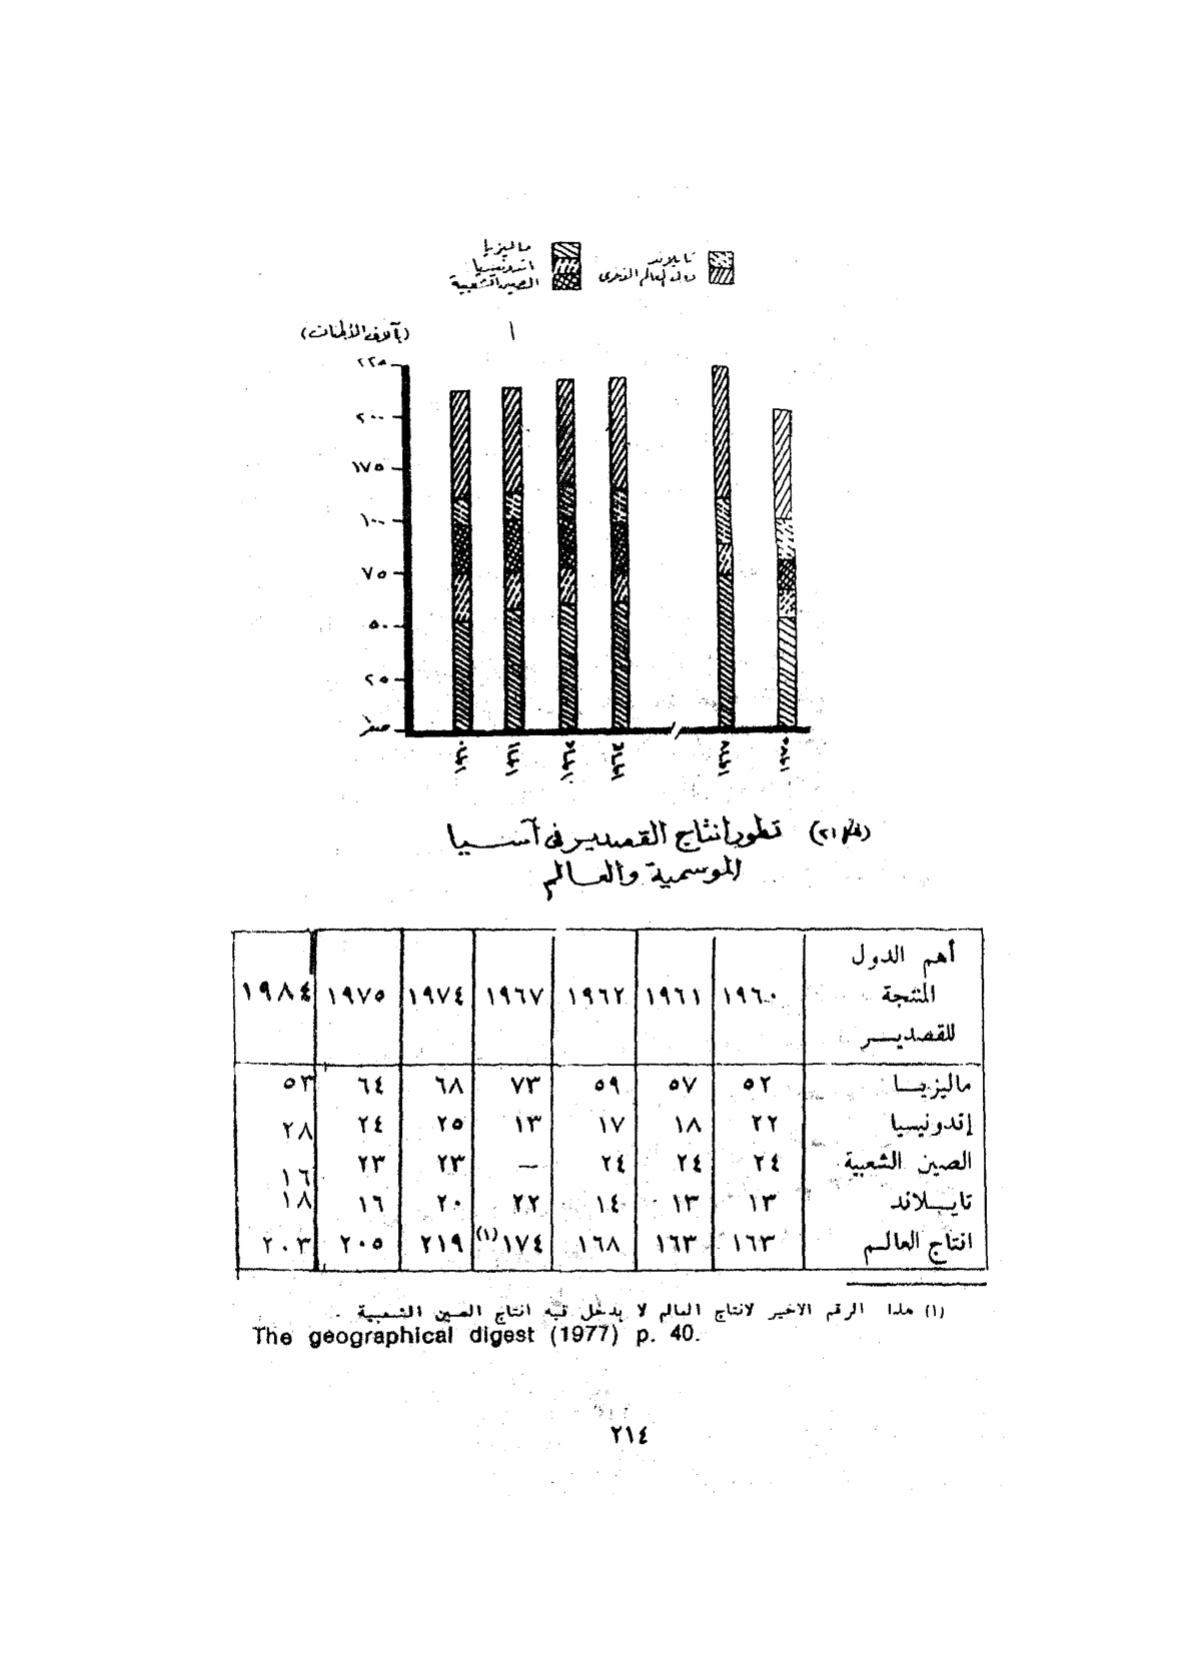 ماليزيا
اندونيسيا
الصين الشعبية
تايلاند
دول العالم الاخرى
(بآلاف الأطنان)
٢٢٥
٢٠٠
١٧٥
١٠٠
٧٥
٥٠
٢٥
صفر
١٩٦٠ ١٩٦١ ١٩٦٢ ١٩٦٤ ١٩٦٧ ١٩٧٥
(شكل ٢١) تطور انتاج القصدير فى آسيا
الموسمية والعالم
أهم الدول المنتجة للقصديـر ١٩٦٠ ١٩٦١ ١٩٦٢ ١٩٦٧ ١٩٧٤ ١٩٧٥ ١٩٨٤
ماليزيـا ٥٢ ٥٧ ٥٩ ٧٣ ٦٨ ٦٤ ٥٣
إندونيسيا ٢٢ ١٨ ١٧ ١٣ ٢٥ ٢٤ ٢٨
الصين الشعبية ٢٤ ٢٤ ٢٤ — ٢٣ ٢٣ ١٦
تايـلاند ١٣ ١٣ ١٤ ٢٢ ٢٠ ١٦ ١٨
انتاج العالـم ١٦٣ ١٦٣ ١٦٨ ١٧٤(١) ٢١٩ ٢٠٥ ٢٠٣
(١) هذا الرقم الاخير لانتاج العالم لا يدخل فيه انتاج الصين الشعبية .
The geographical digest (1977) p. 40.
٢١٤